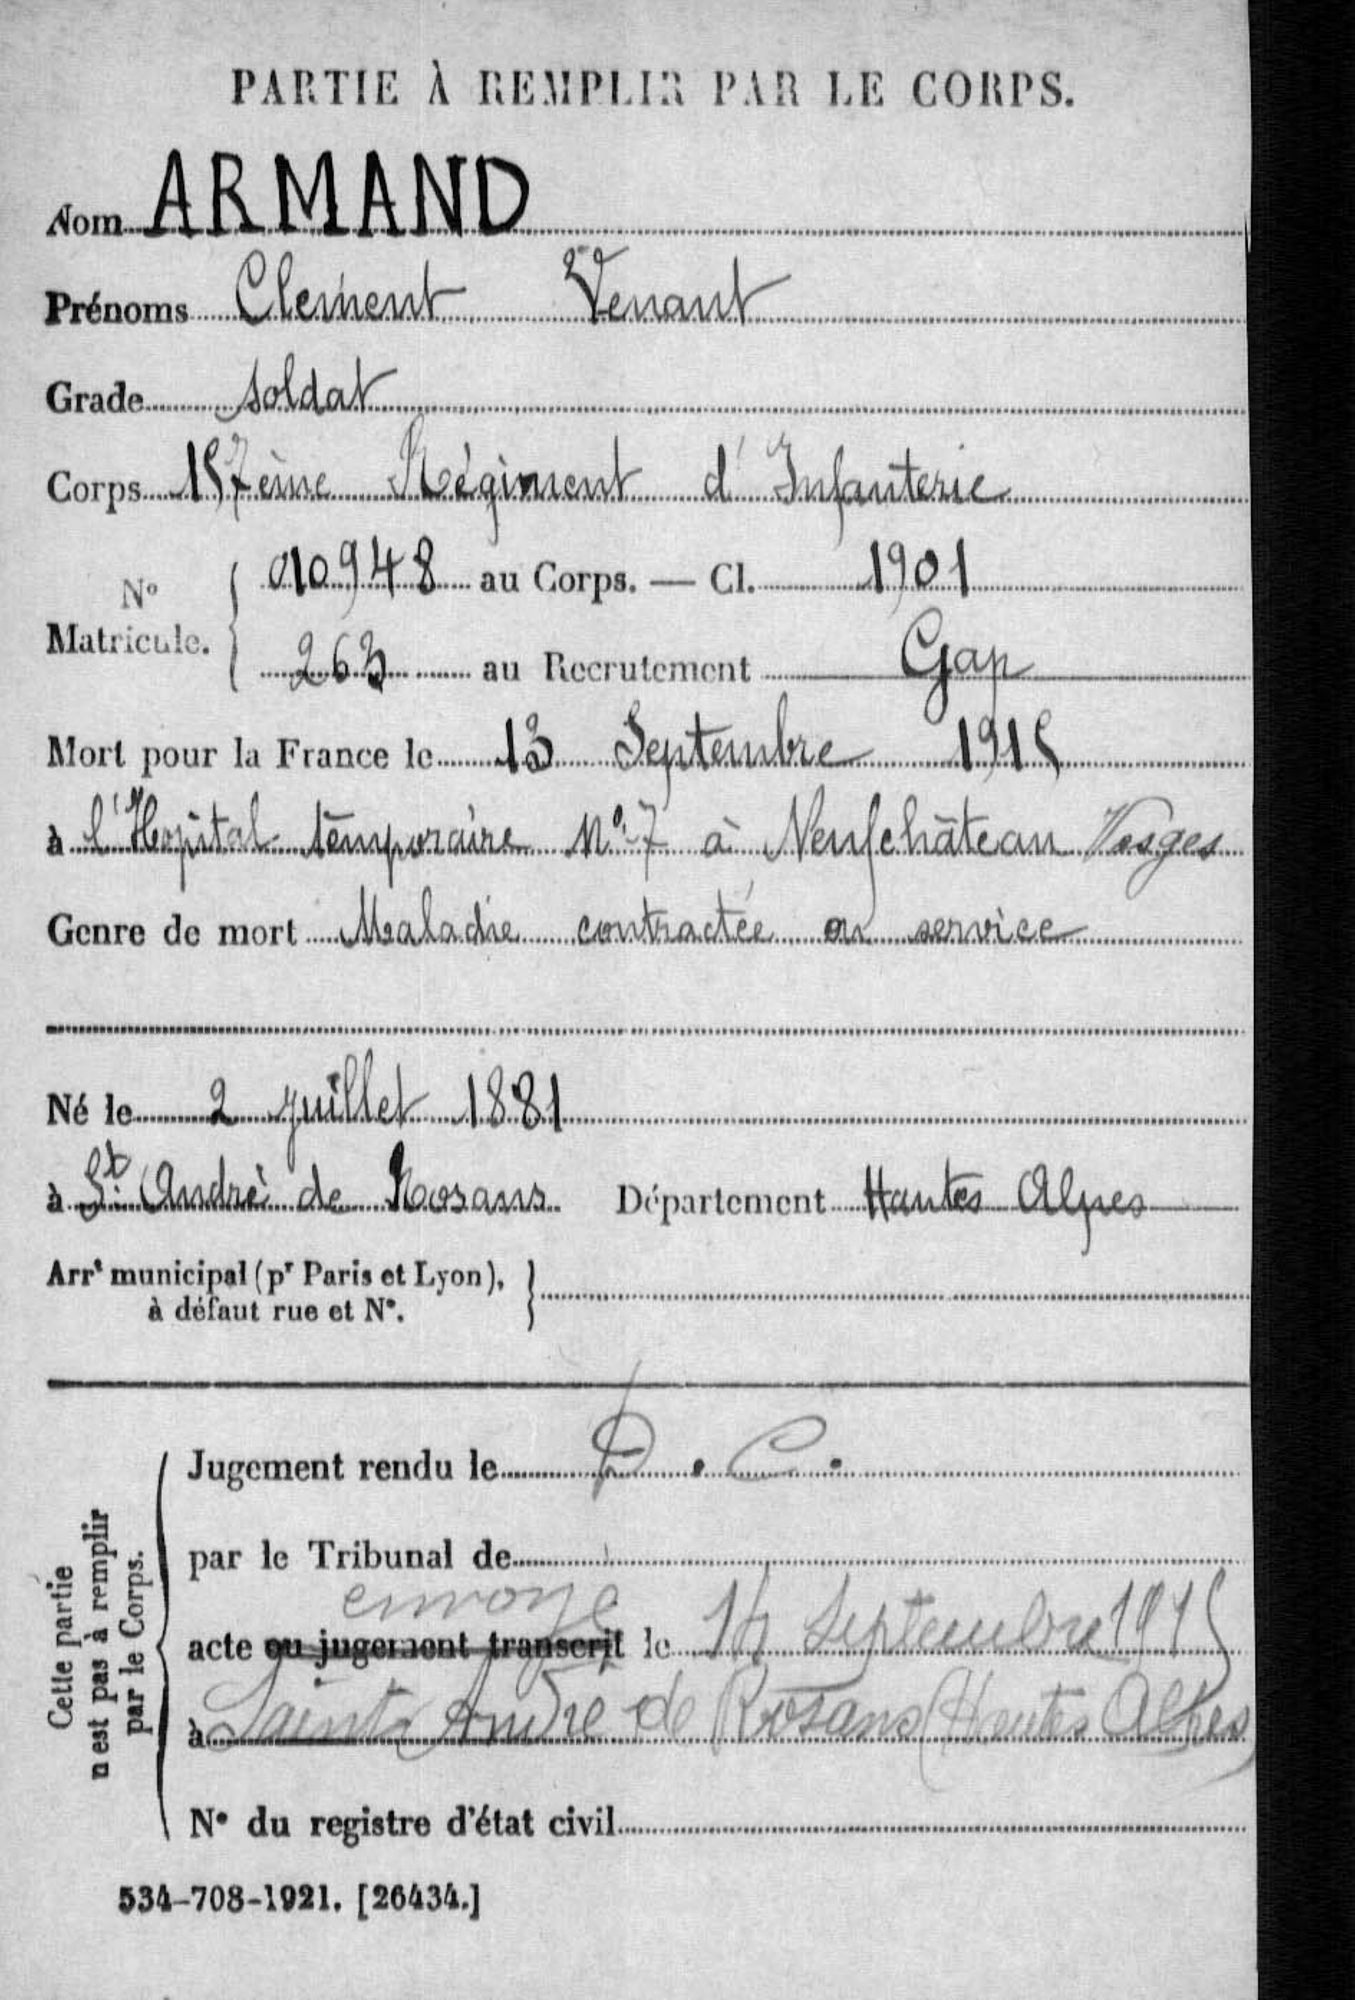 PARTIE À REMPLIR PAR LE CORPS.
Nom ARMAND
Prénoms Clement Venant
Grade soldat
Corps 157ème Régiment d'Infanterie
N° Matricule. { 010948 au Corps. — Cl. 1901
263 au Recrutement Gap
Mort pour la France le 13 Septembre 1915
à l'Hopital temporaire N° 7 à Neufchâteau Vosges
Genre de mort Maladie contractée au service
Né le 2 Juillet 1881
à St. André de Rosans Département Hautes Alpes
Arrt municipal (pr Paris et Lyon), }
à défaut rue et N°.
Cette partie
n'est pas à remplir
par le Corps.
Jugement rendu le D. C.
par le Tribunal de
envoyé
acte ou jugement transcrit le 14 Septembre 1915
à Saint André de Rosans (Hautes Alpes)
N° du registre d'état civil
534-708-1921. [26434.]